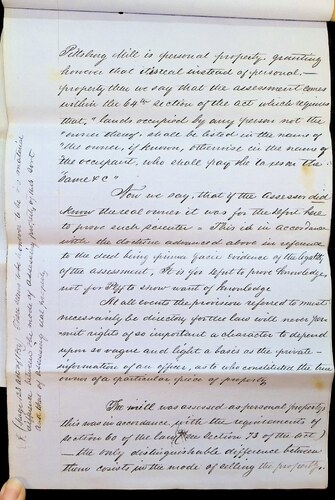 Pittsburg Mill is personal property, granting
however that it is real instead of personal —
property then we say that the assessment comes
within the 64th section of the act which requires
that, "lands occupied by any person not the
"owner thereof shall be listed in the name of
"the owner, if known, otherwise in the name of
"the occupant, who shall pay the taxes on the
"same &c"
Now we say, that if the assessor did
know the real owner it was for the Deft here
to prove such scienter — This is in accordance
with the doctrine advanced above in reference
to the deed being prima facie evidence of the legality
of the assessment, It is for Deft to prove knowledge,
not for Plff to show want of knowledge
At all events the provision referred to must
necessarily be directory for the law will never per-
mit rights of so important a character to depend
upon so vague and light a basis as the private
information of an officer, as to who constituted the true
owner of a particular piece of property
The mill was assessed as personal property
this was in accordance with the requirements of
section 60 of the law (see Section 73 of the act)
— the only distinguishable difference between
them consists in the mode of selling the property.
difference between the mode of assessing property of this sort
and that of assessing real property